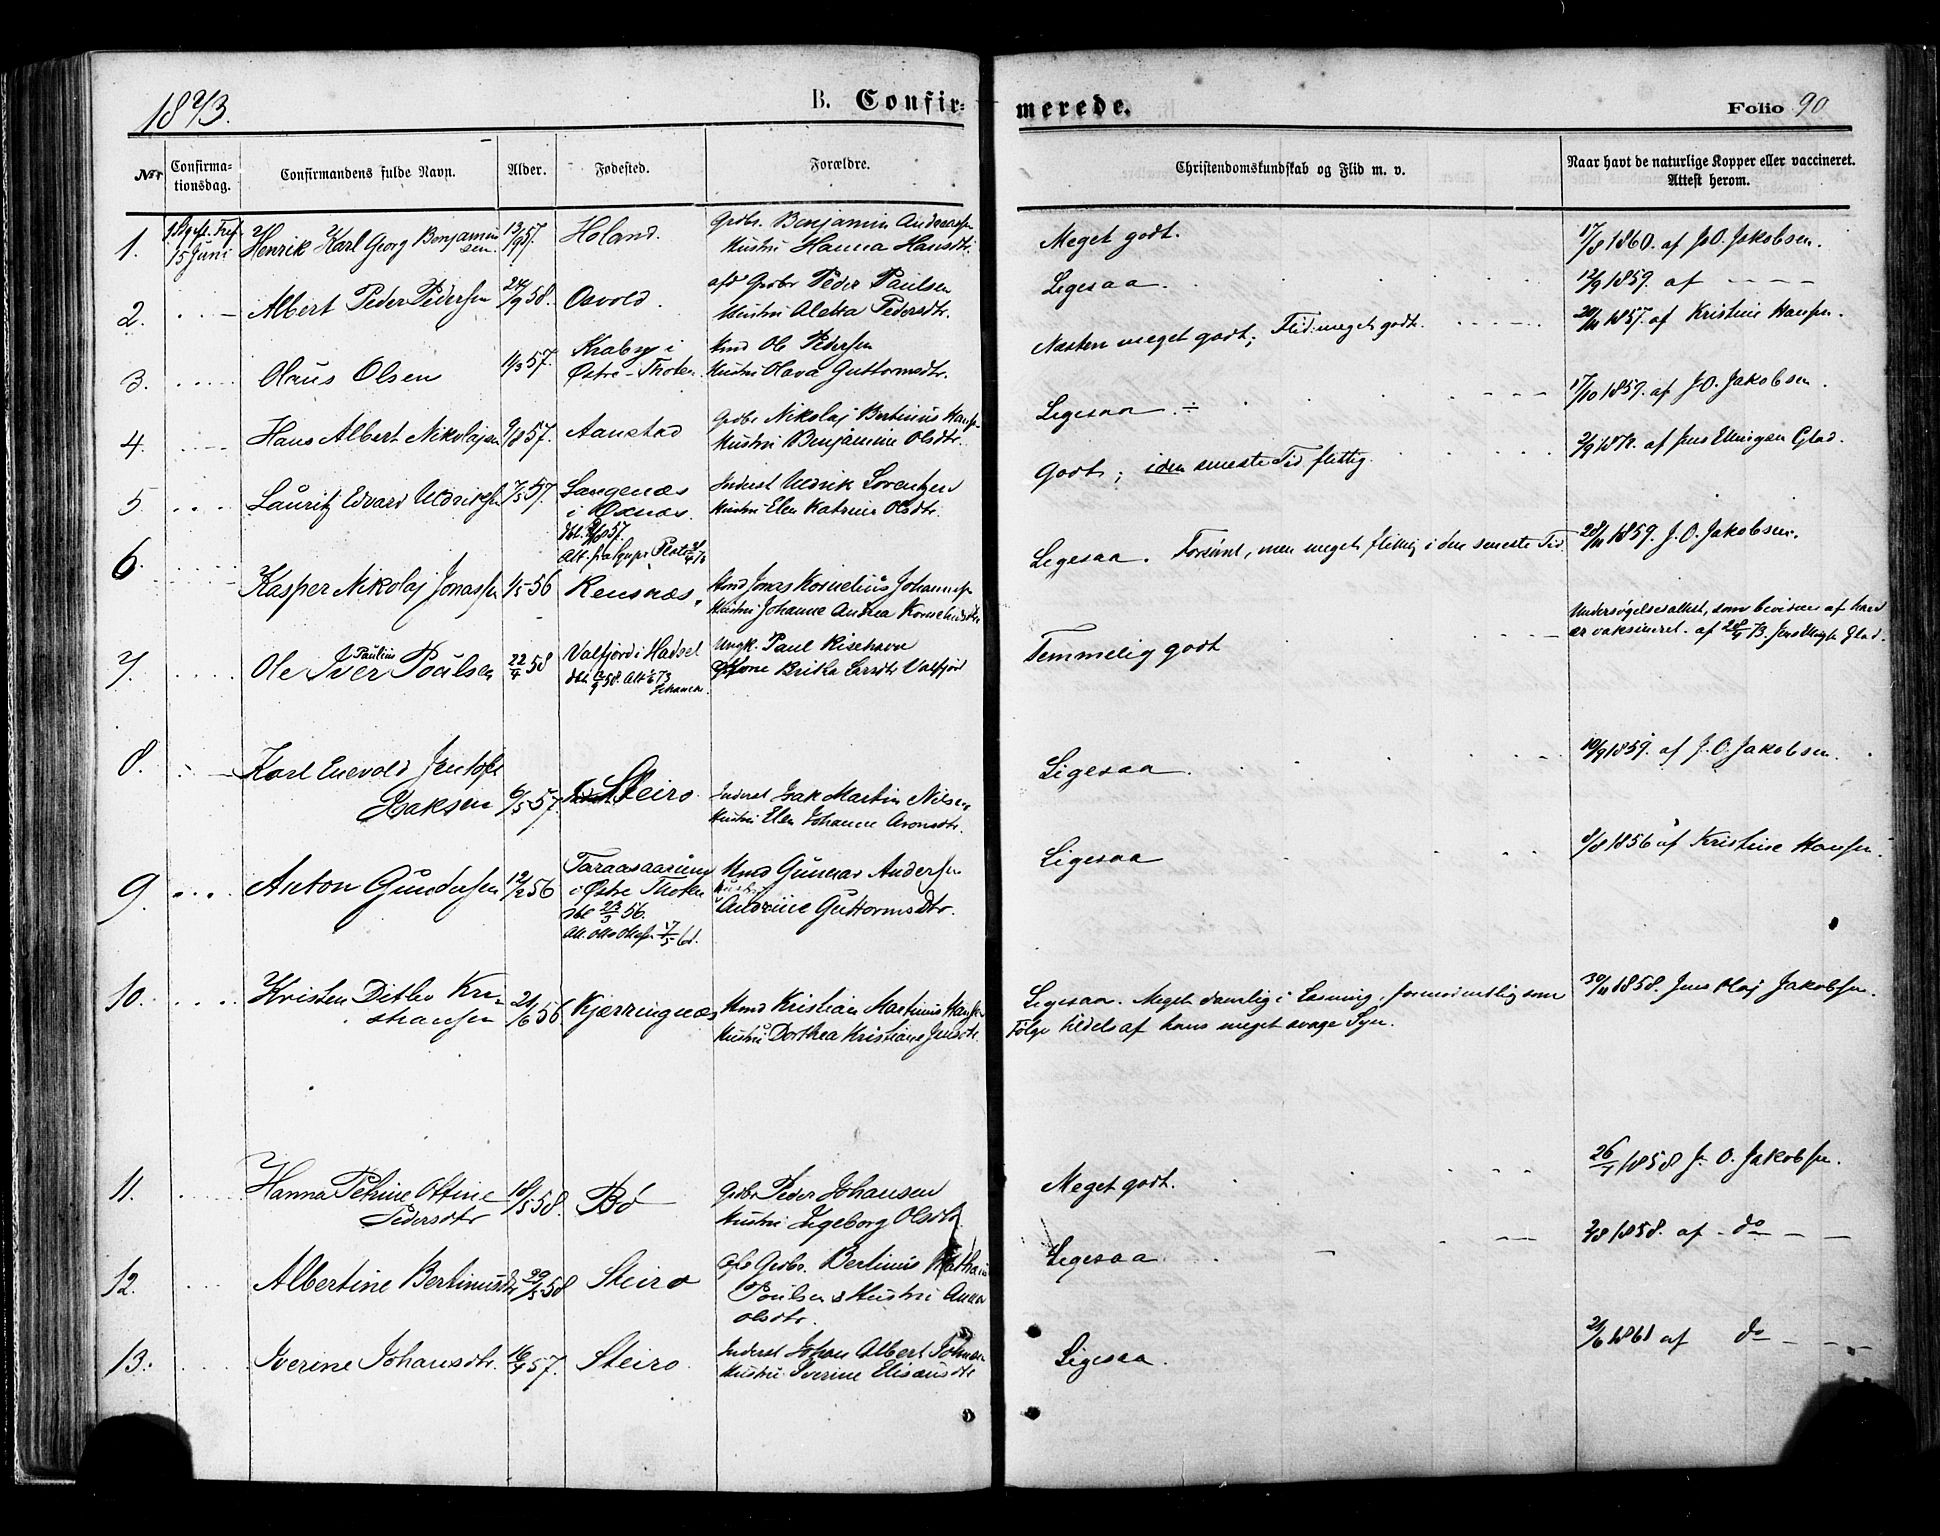 1873.
B. Confir-
merede.
Folio 90
No.
Confirma-
tionsdag.
Confirmandens fulde Navn.
Alder.
Fødested.
Forældre.
Christendomskundskab og Flid m. v.
Naar havt de naturlige Kopper eller vaccineret.
Attest herom.
1. 15 Juni Henrik Karl Georg Benjamin
sen. 57. Holand. Grdbr. Benjamin Andreass.
Hustru Hanna Hansdtr.
Meget godt.
17/8 1860. af J.O. Jakobsen.
2. Albert Peder Pedersen 24/9 58. Osvold. afd Grdbr Peder Paulsen
Hustru Aletta Pedersdtr.
Ligesaa.
12/9 1859. af - - - -
3. Olaus Olsen 11/3 57. Krabye i
Østre-Thoten. Hmd Ole Pedersen
Hustru Olava Guttormsdtr.
Næsten meget godt; Flid: meget godt.
20/11 1857. af Kristine Hansen.
4. Hans Albert Nikolajsen 9/8 57. Aanstad Grdbr Nikolaj Bertinius Hans.
Hustru Benjamine Olsdtr.
Ligesaa ÷
17/10 1859. af J.O. Jakobsen.
5. Lauritz Edvard Uldriksen 7/5 57. Langenæs
i Øxnæs. Inderst Uldrik Lorentzen
Hustru Elen Katrine Olsdtr.
Godt; i den seneste Tid flittig.
2/9 1872. af Jens Ellingsen Glad.
6. Kasper Nikolaj Jonassen 1/5 56 Rensnæs. Hmd Jonas Kornelius Johanness.
Hustru Johanne Andrea Korneliusdtr
Ligesaa. Forsømt, men meget flittig i den seneste Tid.
28/11 1859. J.O. Jakobsen.
7. Paulius
Ole Iver Poulsen 22/4 58 Valfjord i Hadsel
Ungk. Paul Risehavn
Pige Kone Brita Larsdtr Valfjord
Temmelig godt
Undersøgelsesattest, som beviser at han
er vaksineret. af 28/4 73. Jens Ellingsen Glad.
8. Karl Enevold Jentoft
Isaksen 6/5 57. Steiro. Inderst Isak Martin Nilsen
Hustru Elen Johanne Aronsdtr.
Ligesaa.
10/9 1859. af J.O. Jakobsen.
9. Anton Gundersen 12/2 56
i Østre Thoten
dbt 23/3 56.
Hmd Gunnar Andersen
Hustru
Andrine Guttormsdtr.
Ligesaa
8/8 1856 af Kristine Hansen.
10. Kristen Ditlev Kri-
stiansen 21/6 56 Kjærringnæs Hmd Kristian Martinus Hansen
Hustru Dorthea Kristiane Jensdtr.
Ligesaa. Meget daarlig i Læsning, formodentlig som
Følge tildels af hans meget svage Syn.
30/11 1858. Jens Olaj Jakobsen.
11. Hanna Petrine Ottine
Pedersdtr 18/5 58. Bø Grdbr Peder Johansen
Hustru Ingeborg Olsdtr.
Meget godt.
26/7 1858 J. O. Jakobsen.
12. Albertine Bertinusdtr 29/5 58 Steiro Afd Grdbr. Bertinus Mathias
Poulsen & Hustru Anna
Olsdtr.
Ligesaa
2/8 1858. af - do - -
13. Iverine Johansdtr. 16/4 57. Steiro. Inderst Johan Albert Johnsen
Hustru Iverine Eliasusdtr
Ligesaa.
21/6 1861 af do - -